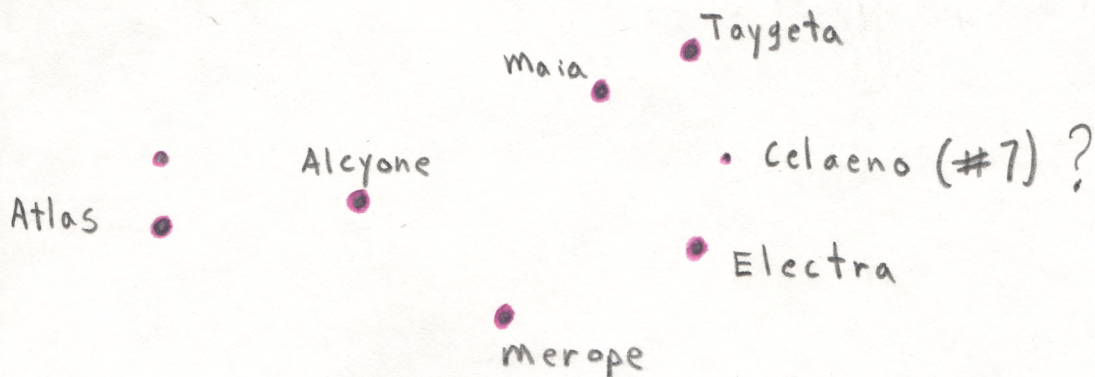 Taygeta
Maia
Alcyone
Celaeno (#7) ?
Atlas
Electra
merope